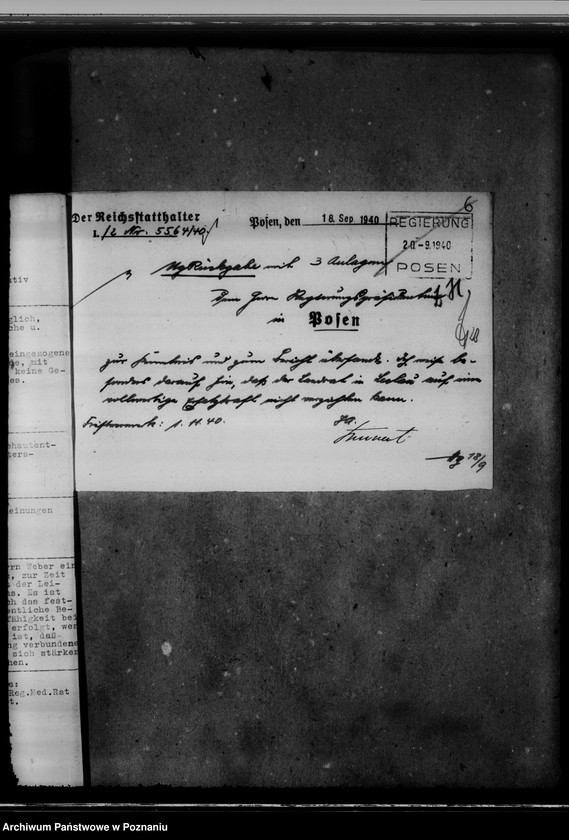 6
Der Reichsstatthalter
I/2 Nr. 5564/40
Posen, den 18. Sep. 1940
REGIERUNG
20.-9.1940
POSEN
Rückgabe mit 3 Anlagen
Dem Herrn Regierungspräsidenten
in Posen
zur Kenntnis und zum Bericht übersandt. Ich weise be-
sonders darauf hin, daß der Landrat in Leslau auf eine
vollwertige Ersatzkraft nicht verzichten kann.
1. 11. 40.
18/9
ativ
glich,
che u.
eingezogene
ge, mit
keine Ge-
es.
chsutent-
ters-
einungen
rrn Weber ein
, zur Zeit
der Lei-
s. Es ist
ch das fest-
entliche Be-
fähigkeit bei
erfolgt, wer
ist, daß
ng verbundene
sich stärker
hen.
Reg.Med.Rat
t.
Archiwum Państwowe w Poznaniu